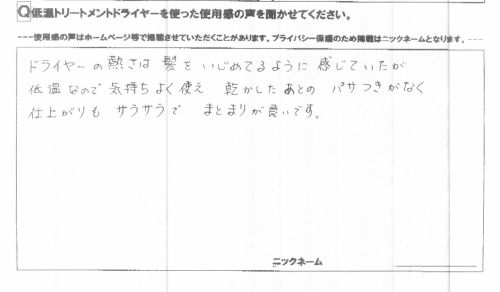 Q低温トリートメントドライヤーを使った使用感の声を聞かせてください。
---使用感の声はホームページ等で掲載させていただくことがあります。プライバシー保護のため掲載はニックネームとなります。---
ドライヤーの熱さは 髪を いじめてるように 感じていたが
低温なので気持ちよく使え 乾かしたあとの パサつきがなく
仕上がりも サラサラで まとまりが良いです。
ニックネーム